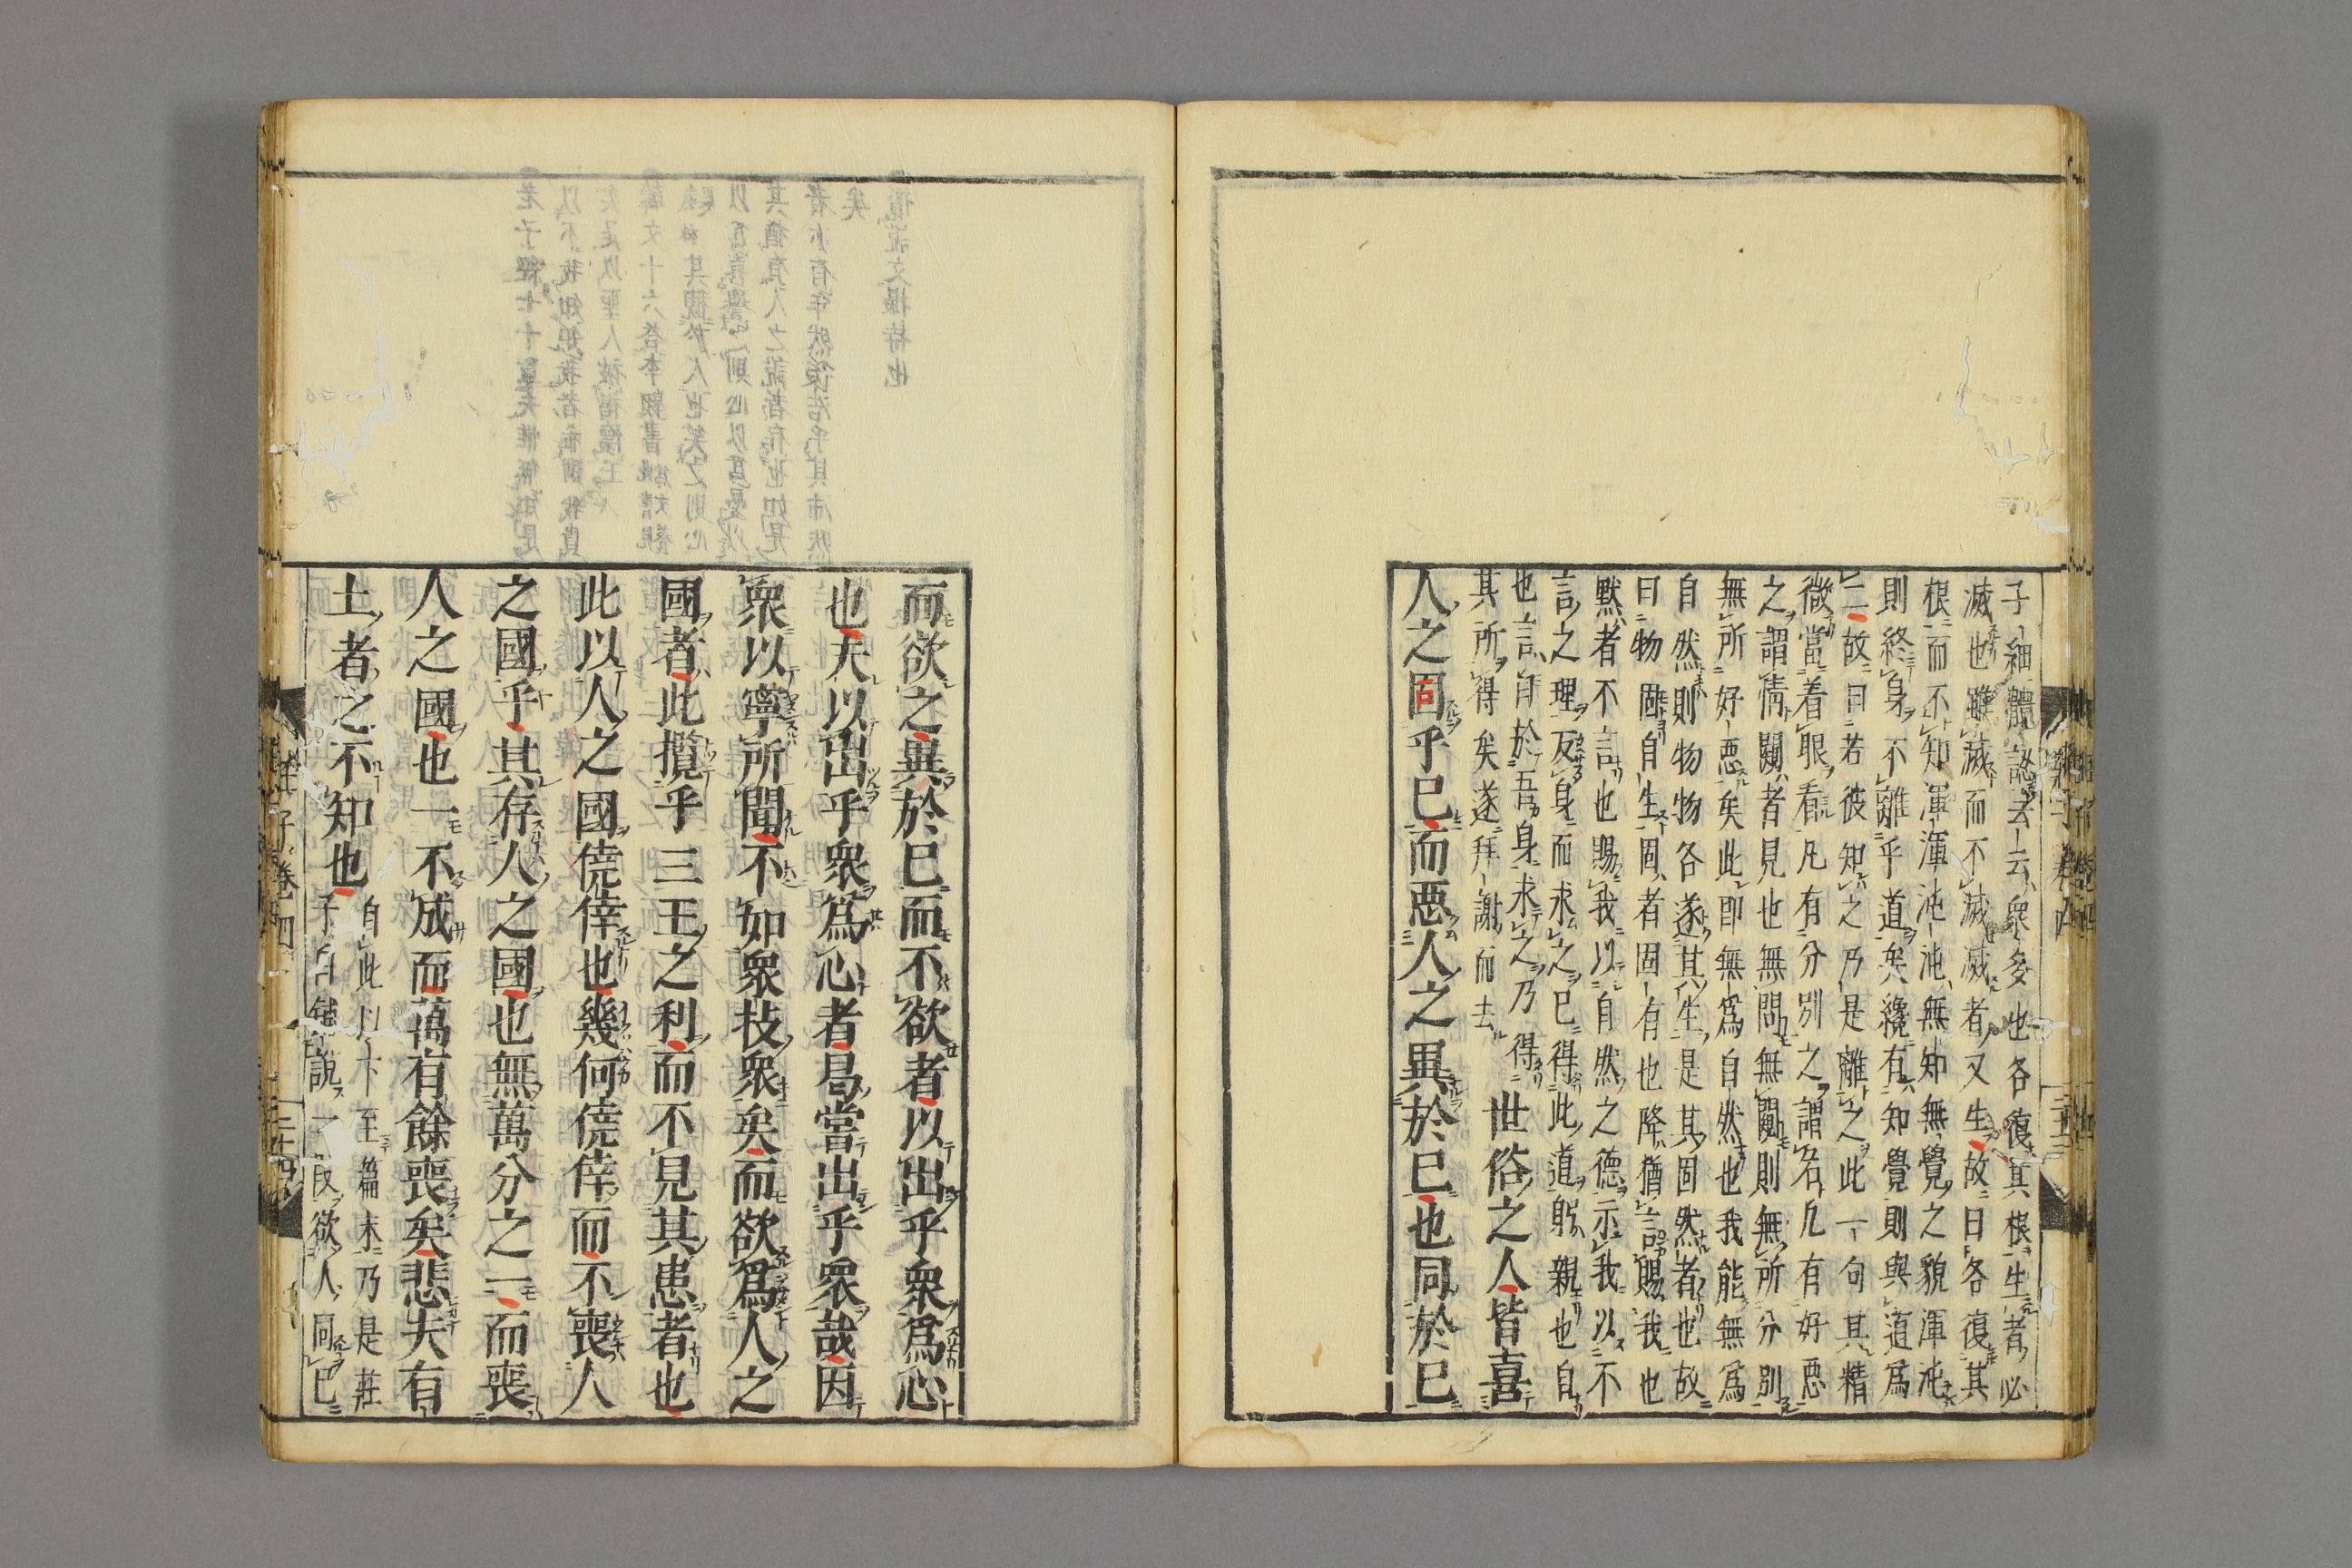 子細體認去云云衆多也各復其根生者必
滅也雖滅而不滅滅者又生故曰各復其
根而不知渾渾沌沌無知無覺之貌渾沌
則終身不離乎道矣纔有知覺則與道爲
二故曰若彼知之乃是離之此一句其精
微當着眼看凡有分別之謂名凡有好惡
之謂情闚者見也無問無闚則無所分別
無所好惡矣此即無爲自然也我能無爲
自然則物物各遂其生是其固然者也故
曰物固自生固者固有也降猶言賜我也
默者不言也賜我以自然之德示我以不
言之理反身而求之已得此道躬親也自
也言自於吾身求之乃得世俗之人皆喜
其所得矣遂拜謝而去
人之同乎已而惡人之異於已也同於已
而欲之異於已而不欲者以出乎衆爲心
也夫以出乎衆爲心者曷當出乎衆哉因
衆以寧所聞不如衆技衆矣而欲爲人之
國者此攬乎三王之利而不見其患者也
此以人之國僥倖也幾何僥倖而不喪人
之國乎其存人之國也無萬分之一而喪
人之國也一不成而萬有餘喪矣悲夫有
土者之不知也
自此以下至篇末乃是莊
子自鋪說一段欲人同已
莊子卷四
二十四